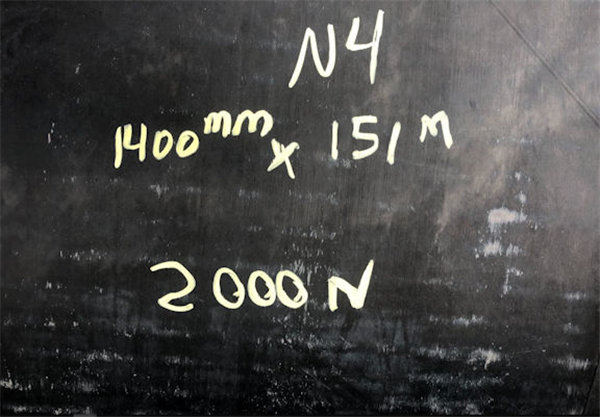 N4
1400mm x 151m
2000N